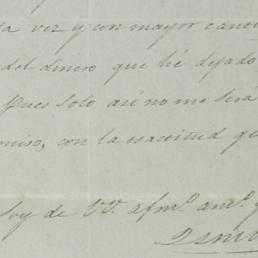 vez y con mayor
del dinero que hé dejado
Pues solo asi no me será
con la esactitud
Soy de VV. afmo. amo.